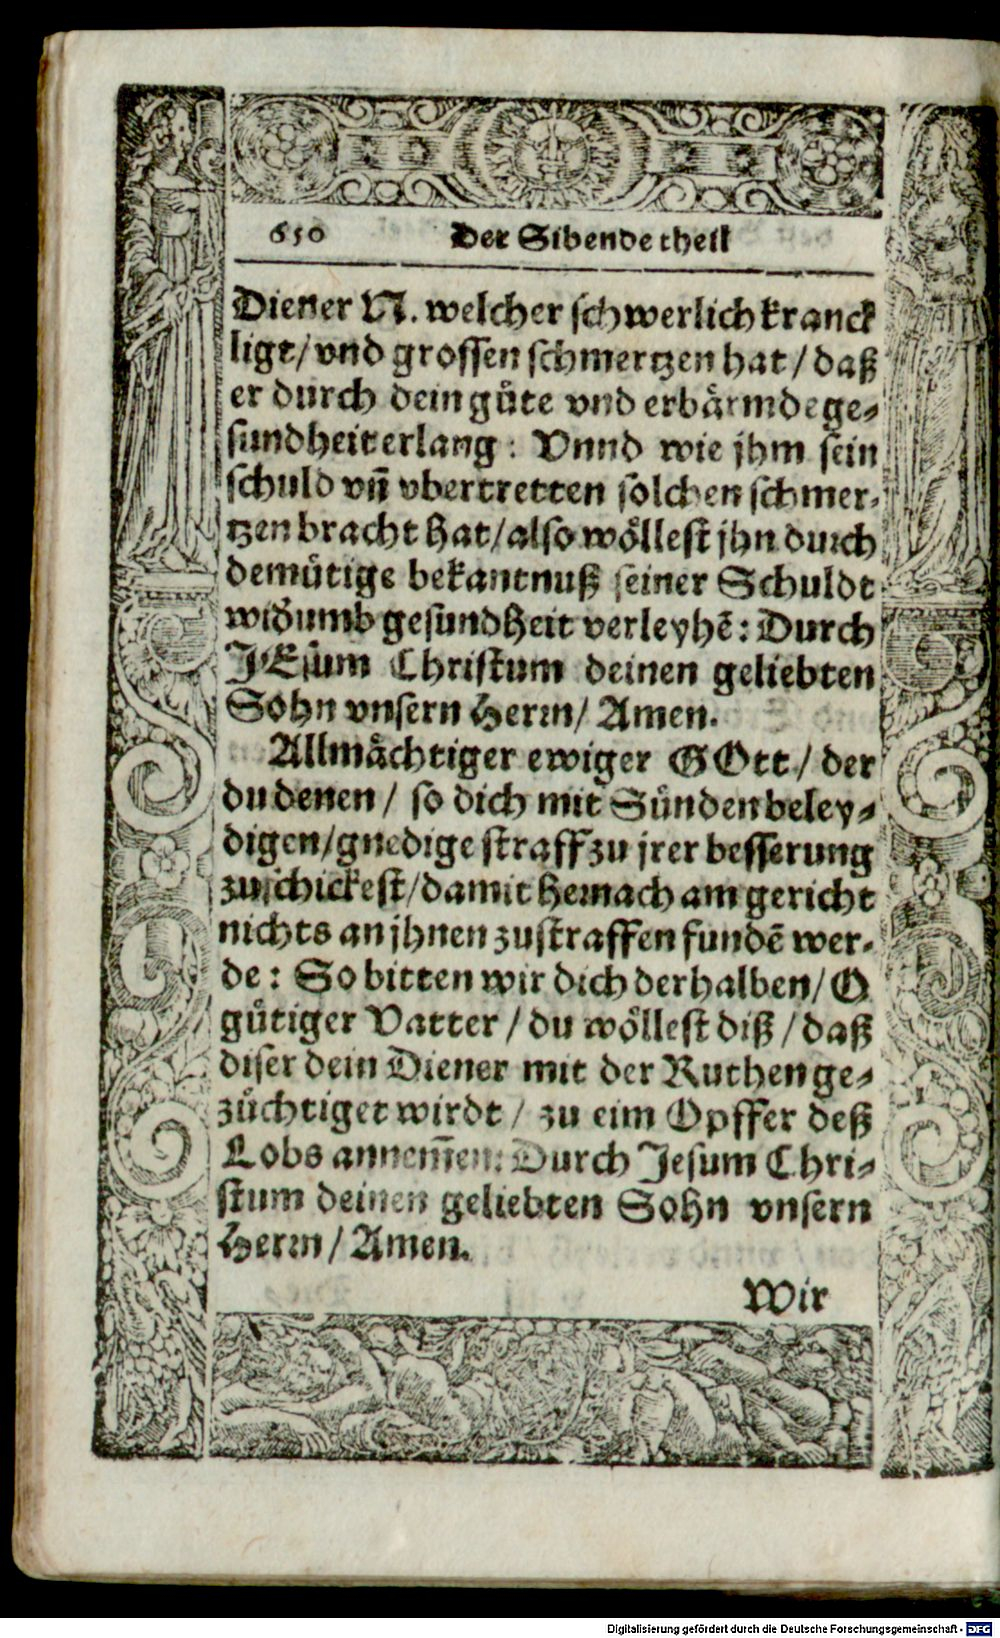 650 Der Sibende theil
Diener N. welcher schwerlich kranck
ligt/ vnd grossen schmertzen hat / daß
er durch dein guͤte vnd erbaͤrmde ge⸗
sundheit erlang: Vnnd wie jhm sein
schuld vñ vbertretten solchen schmer⸗
tzen bracht hat/ also woͤllest jhn durch
demuͤtige bekantnuß seiner Schuldt
widumb gesundheit verleyhẽ: Durch
JEsum Christum deinen geliebten
Sohn vnsern Herrn/ Amen.
Allmaͤchtiger ewiger GOtt / der
du denen / so dich mit Suͤnden beley⸗
digen/ gnedige straff zu jrer besserung
zuschickest/ damit hernach am gericht
nichts an jhnen zustraffen fundẽ wer⸗
de: So bitten wir dich derhalben/ O
guͤtiger Vatter / du woͤllest diß / daß
diser dein Diener mit der Ruthen ge⸗
zuͤchtiget wirdt / zu eim Opffer deß
Lobs annem̃en: Durch Jesum Chri⸗
stum deinen geliebten Sohn vnsern
Herrn / Amen.
Wir
Digitalisierung gefördert durch die Deutsche Forschungsgemeinschaft - DFG